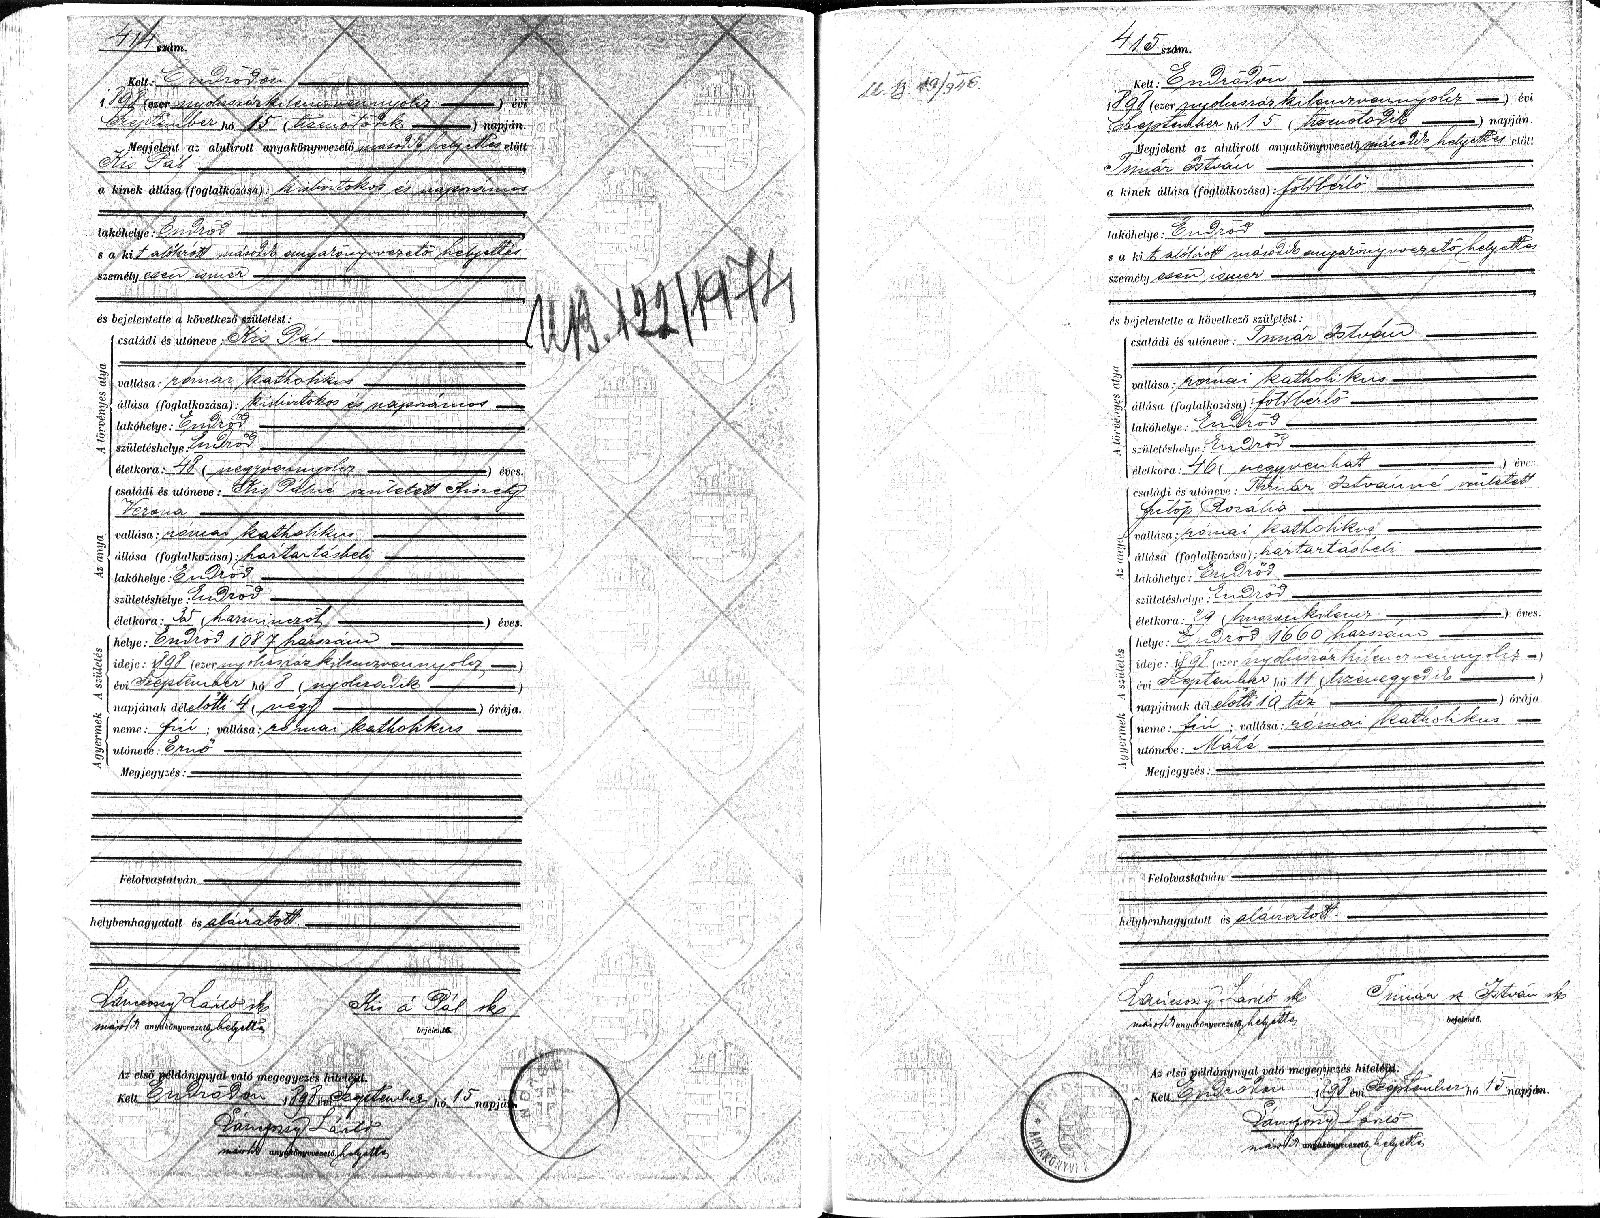 414 szám.
Kelt: Endrődön
1898 (ezer nyolcszázkilenczvennyolcz) évi
Szeptember hó 15 (tizenötödik) napján.
Megjelent az alulirott anyakönyvvezető második helyettes előtt
Kis Pál
a kinek állása (foglalkozása): kisbirtokos és napszámos
lakóhelye: Endrőd
s a kit alólirott második anyakönyvvezető helyettes
személyesen ismer
és bejelentette a következő születést:
A törvényes atya
családi és utóneve: Kis Pál
vallása: római katholikus
állása (foglalkozása): kisbirtokos és napszámos
lakóhelye: Endrőd
születéshelye: Endrőd
életkora: 48 (negyvennyolcz) éves.
Az anya
családi és utóneve: Kis Pálné született
Verona
vallása: római katholikus
állása (foglalkozása): háztartásbeli
lakóhelye: Endrőd
születéshelye: Endrőd
életkora: 35 (harminczöt) éves.
A születés
helye: Endrőd 1087 házszám
ideje: 1898 (ezer nyolcszázkilenczvennyolcz)
évi Szeptember hó 8 (nyolczadik)
napjának délelőtti 4 (négy) órája.
A gyermek
neme: fiú; vallása: római katholikus
utóneve: Ernő
Megjegyzés:
Felolvastatván
helybenhagyatott és aláiratott.
László sk Kis á Pál sk
második anyakönyvvezető helyettes bejelentő.
Az első példánynyal való megegyezés hiteléül.
Kelt Endrődön 1898 évi Szeptember hó 15 napján.
László
második anyakönyvvezető helyettes
UB. 122/1974
415 szám.
Kelt: Endrődön
1898 (ezer nyolcszázkilenczvennyolcz) évi
Szeptember hó 15 (tizenötödik) napján.
Megjelent az alulirott anyakönyvvezető második helyettes előtt
Timár István
a kinek állása (foglalkozása): földbérlő
lakóhelye: Endrőd
s a kit alólirott második anyakönyvvezető helyettes
személyesen ismer
és bejelentette a következő születést:
A törvényes atya
családi és utóneve: Timár István
vallása: római katholikus
állása (foglalkozása): földbérlő
lakóhelye: Endrőd
születéshelye: Endrőd
életkora: 46 (negyvenhat) éves
Az anya
családi és utóneve: Timár Istvánné született
Fülöp Rozália
vallása: római katholikus
állása (foglalkozása): háztartásbeli
lakóhelye: Endrőd
születéshelye: Endrőd
életkora: éves.
A születés
helye: Endrőd 1660 házszám
ideje: 1898 (ezer nyolcszázkilenczvennyolcz)
évi Szeptember hó 11 (tizenegyedik)
napjának délelőtti 10 tíz) órája
A gyermek
neme: fiú; vallása: római katholikus
utóneve: Máté
Megjegyzés:
Felolvastatván
helybenhagyatott és aláiratott.
László sk Timár István sk
második anyakönyvvezető helyettes bejelentő.
Az első példánynyal való megegyezés hiteléül.
Kelt Endrődön 1898 évi Szeptember hó 15 napján.
László
második anyakönyvvezető helyettes